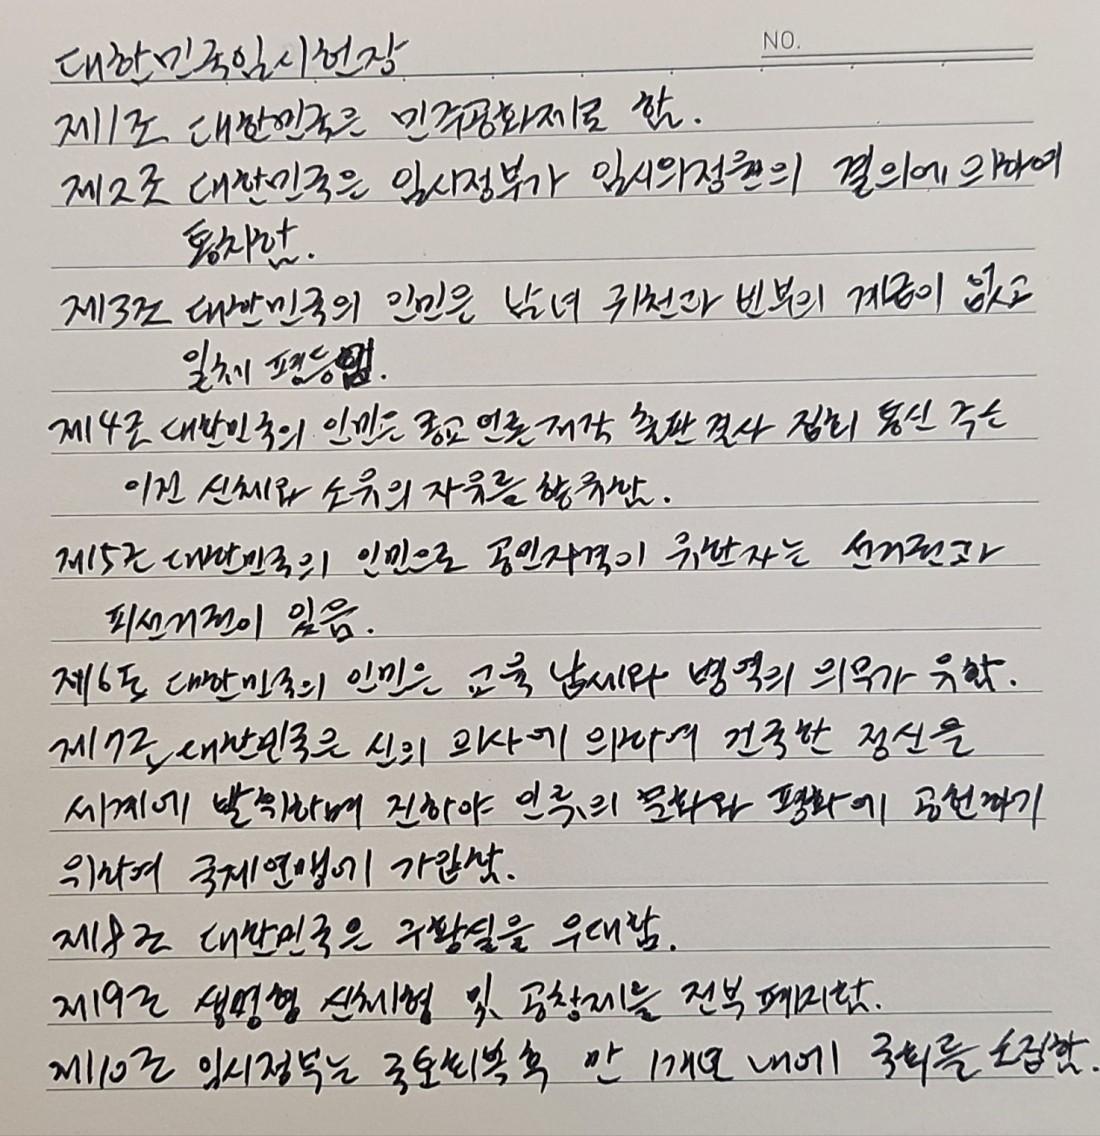 NO.
대한민국임시헌장
제1조 대한민국은 민주공화제로 함.
제2조 대한민국은 임시정부가 임시의정원의 결의에 의하여
통치함.
제3조 대한민국의 인민은 남녀 귀천과 빈부의 계급이 없고
일체 평등임.
제4조 대한민국의 인민은 종교 언론 저작 출판 결사 집회 통신 주소
이전 신체와 소유의 자유를 향유함.
제5조 대한민국의 인민으로 공민자격이 유한자는 선거권과
피선거권이 있음.
제6조 대한민국의 인민은 교육 납세와 병역의 의무가 유함.
제7조 대한민국은 신의 의사에 의하여 건국한 정신을
세계에 발휘하며 진하야 인류의 문화와 평화에 공헌하기
위하여 국제연맹에 가입함.
제8조 대한민국은 구황실을 우대함.
제9조 생명형 신체형 및 공창제를 전부 폐지함.
제10조 임시정부는 국토회복후 만 1개년 내에 국회를 소집함.